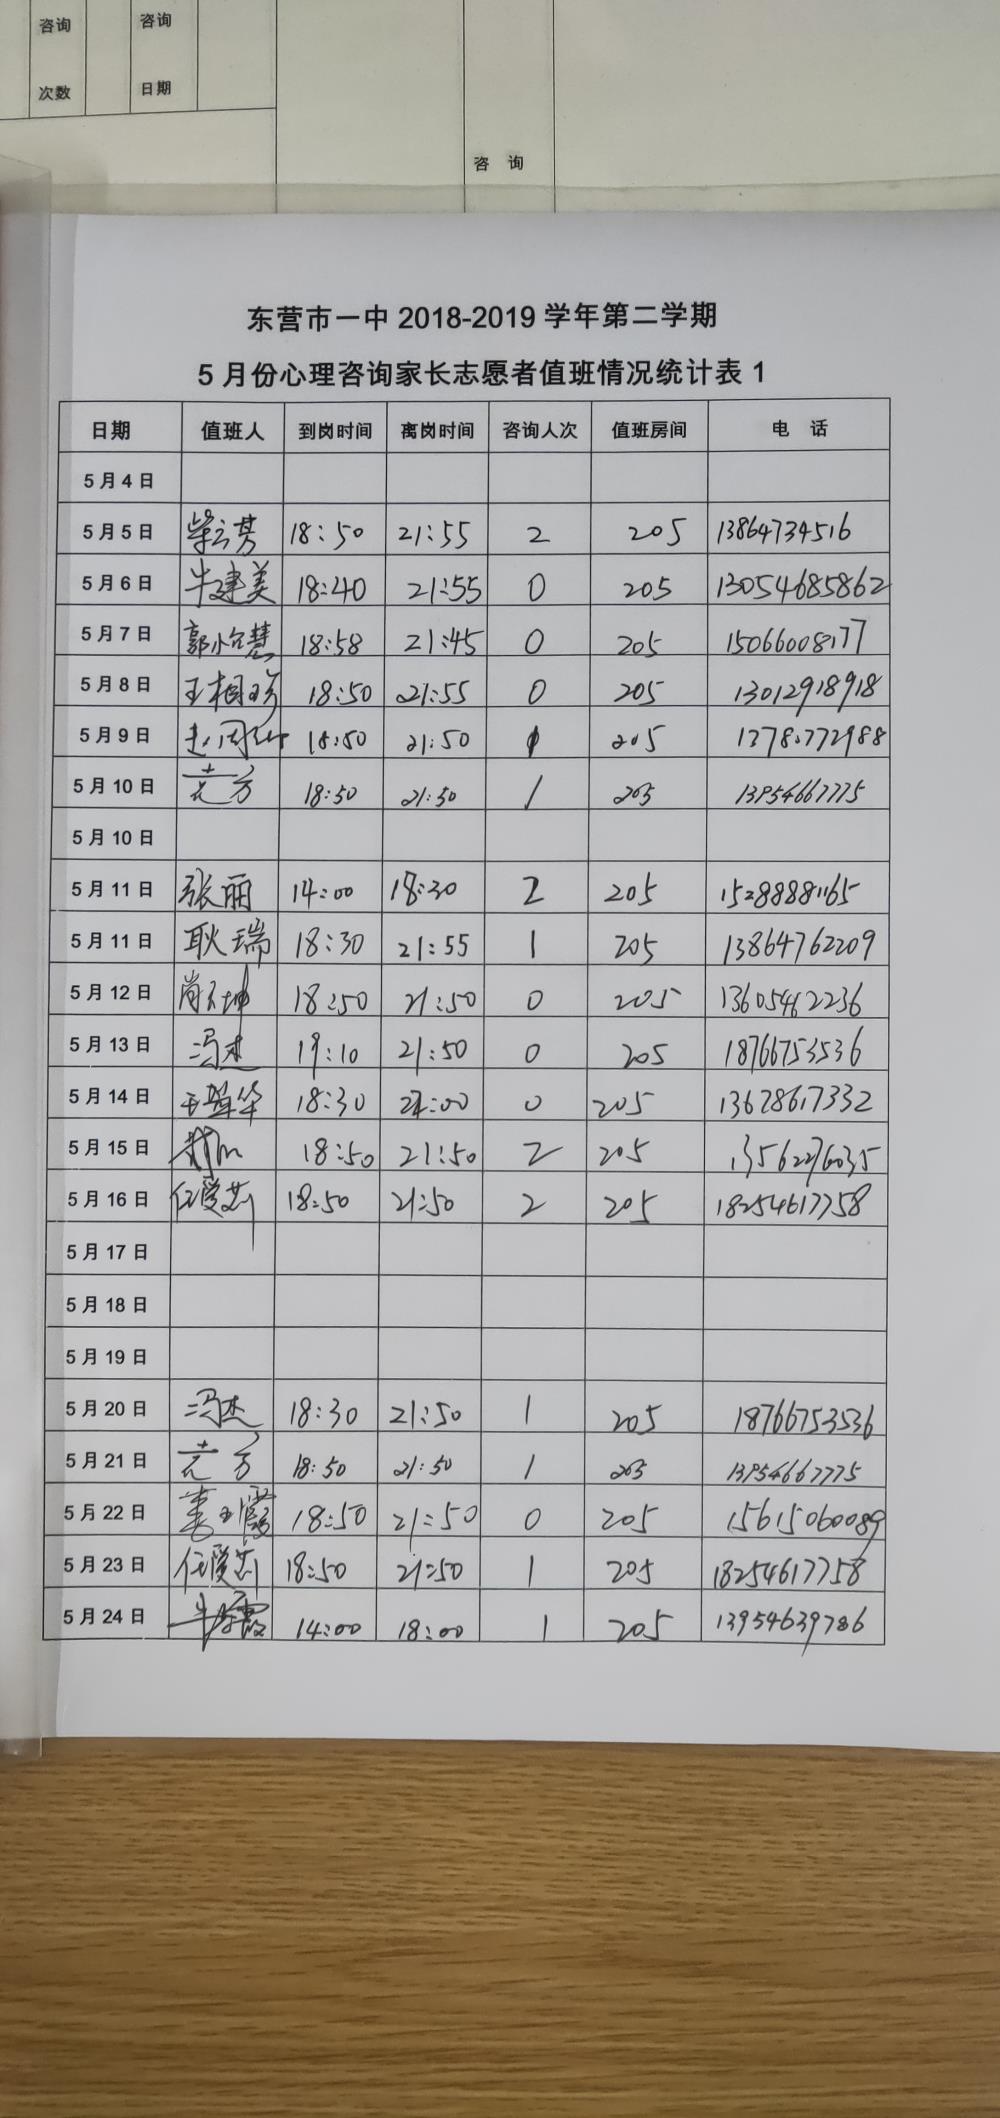 咨询 咨询
次数 日期
咨 询
东营市一中 2018-2019 学年第二学期
5 月份心理咨询家长志愿者值班情况统计表 1
日期 值班人 到岗时间 离岗时间 咨询人次 值班房间 电 话
5 月 4 日
5 月 5 日 18:50 21:55 2 205 13864734516
5 月 6 日 牛建美 18:40 21:55 0 205 13054685862
5 月 7 日 18:58 21:45 0 205 15066008177
5 月 8 日 18:50 21:55 0 205 13012918918
5 月 9 日 18:50 21:50 1 205
5 月 10 日 18:50 21:50 1 205 13954667775
5 月 10 日
5 月 11 日 张丽 14:00 18:30 2 205
5 月 11 日 耿瑞 18:30 21:55 1 205 13864762209
5 月 12 日 18:50 21:50 0 205 13605462236
5 月 13 日 冯杰 19:10 21:50 0 205 18766753536
5 月 14 日 18:30 0 205 13678617332
5 月 15 日 18:50 21:50 2 205 13562276035
5 月 16 日 任爱芬 18:50 21:50 2 205 18254617758
5 月 17 日
5 月 18 日
5 月 19 日
5 月 20 日 冯杰 18:30 21:50 1 205 18766753536
5 月 21 日 18:50 21:50 1 205 13954667775
5 月 22 日 18:50 21:50 0 205 15615060089
5 月 23 日 任爱芬 18:50 21:50 1 205 18254617758
5 月 24 日 14:00 18:00 1 205 13954639786